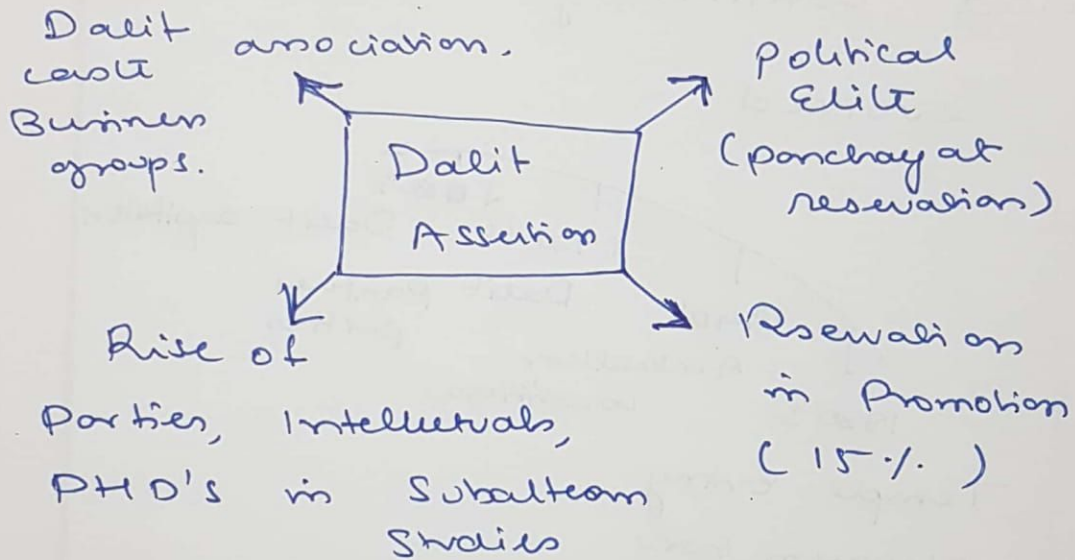 Dalit association.
caste
Business
groups.
Political
Elite
(panchayat
reservation)
Dalit
Assertion
Rise of
Parties, Intellectuals,
PHD'S in Subaltern
Studies
Reservation
in Promotion
(15%)